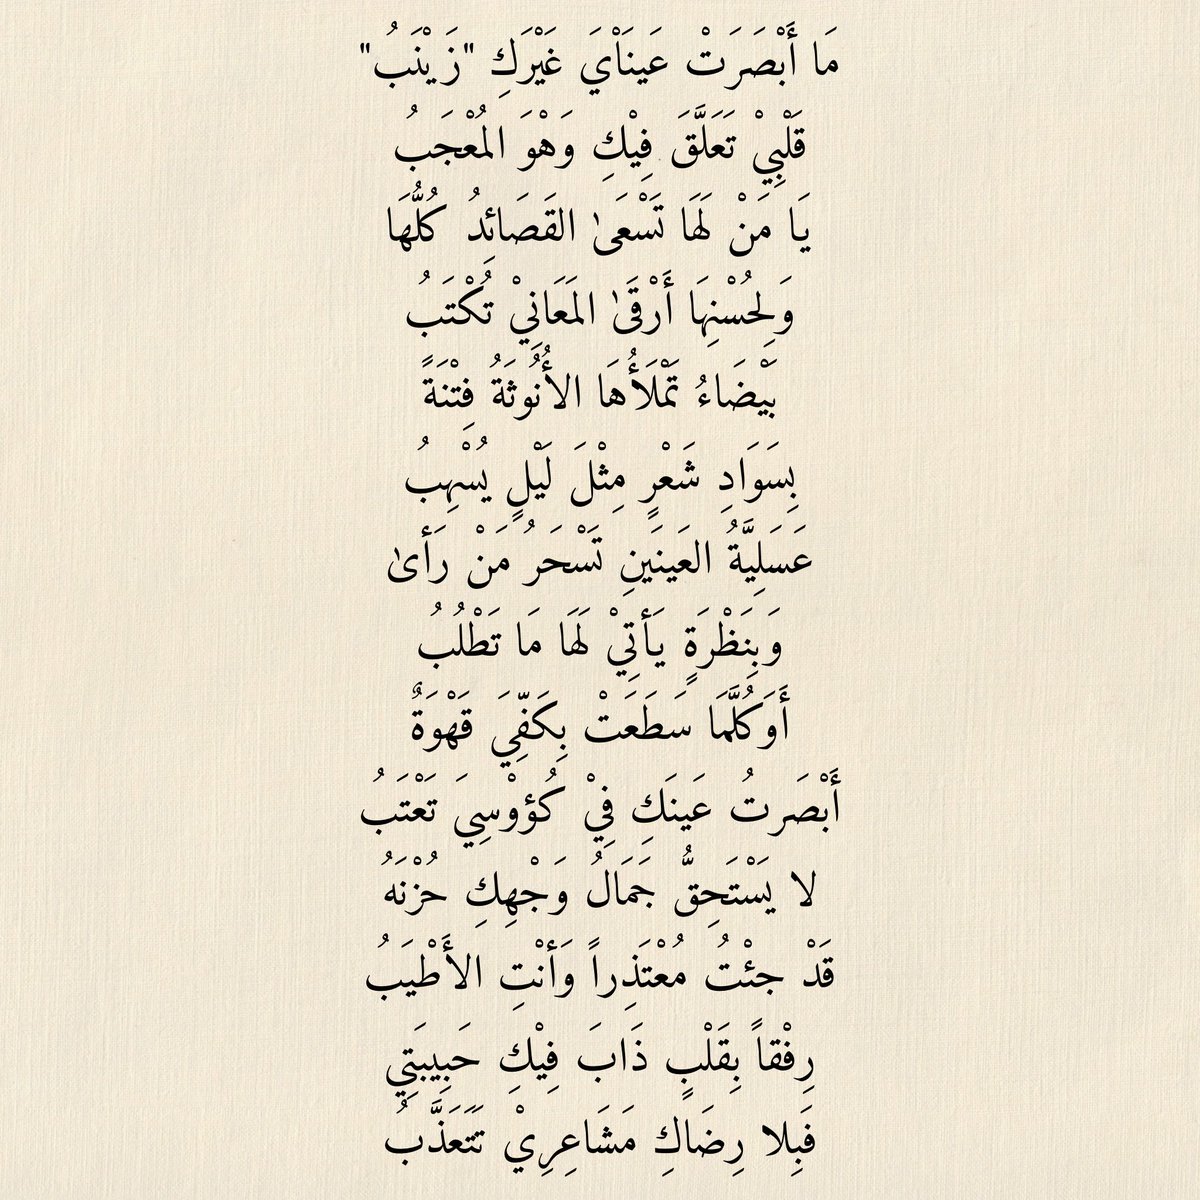 مَا أَبْصَرَتْ عَينَايَ غَيْرَكِ "زَيْنَبُ"
قَلْبِيْ تَعَلَّقَ فِيْكِ وَهْوَ المُعْجَبُ
يَا مَنْ لَهَا تَسْعَىٰ القَصَائِدُ كُلُّهَا
وَلِحُسْنِهَا أَرْقَىٰ المَعَانِيْ تُكْتَبُ
بَيْضَاءُ تَمْلَأُهَا الأُنُوثَةُ فِتْنَةً
بِسَوَادِ شَعْرٍ مِثْلَ لَيْلٍ يُسْهِبُ
عَسَلِيَّةُ العَينَينِ تَسْحَرُ مَنْ رَأىٰ
وَبِنَظْرَةٍ يَأتِيْ لَهَا مَا تَطْلُبُ
أَوَكُلَّمَا سَطَعَتْ بِكَفِّيَ قَهْوَةٌ
أَبْصَرتُ عَينَكِ فِيْ كُؤوْسِيَ تَعْتَبُ
لا يَسْتَحِقُّ جَمَالُ وَجْهِكِ حُزْنَهُ
قَدْ جئْتُ مُعْتَذِراً وَأنْتِ الأَطْيَبُ
رِفْقاً بِقَلْبٍ ذَابَ فِيْكِ حَبِيبَتِي
فَبِلا رِضَاكِ مَشَاعِرِيْ تَتَعَذَّبُ